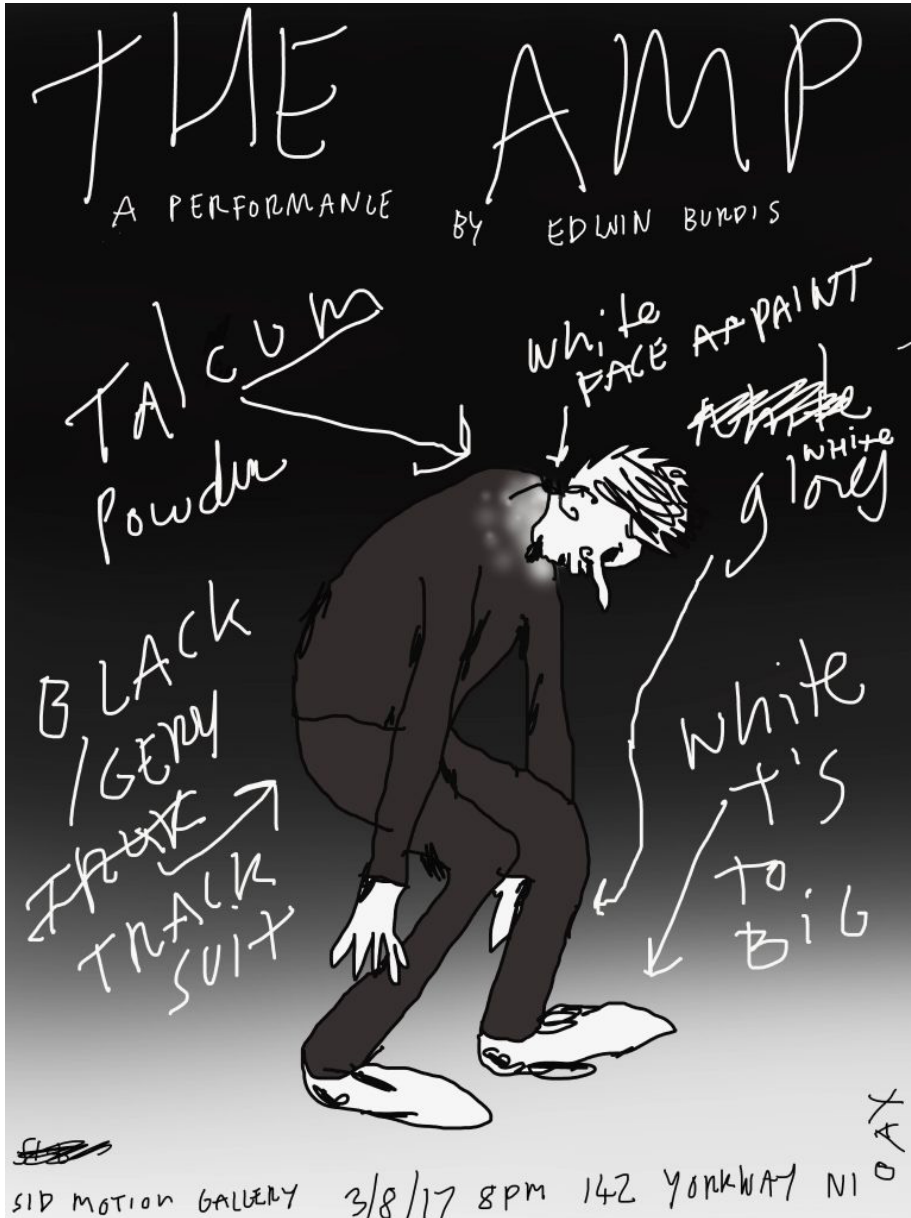 THE AMP
A PERFORMANCE BY EDWIN BURDIS
TAlcum
Powder
white
FACE PAINT
WHite
gloves
BLACK
/GERY
TRACK
SUIT
white
T'S
TO
BiG
SID MOTION GALLERY 3/8/17 8PM 142 YORKWAY N1 0AX